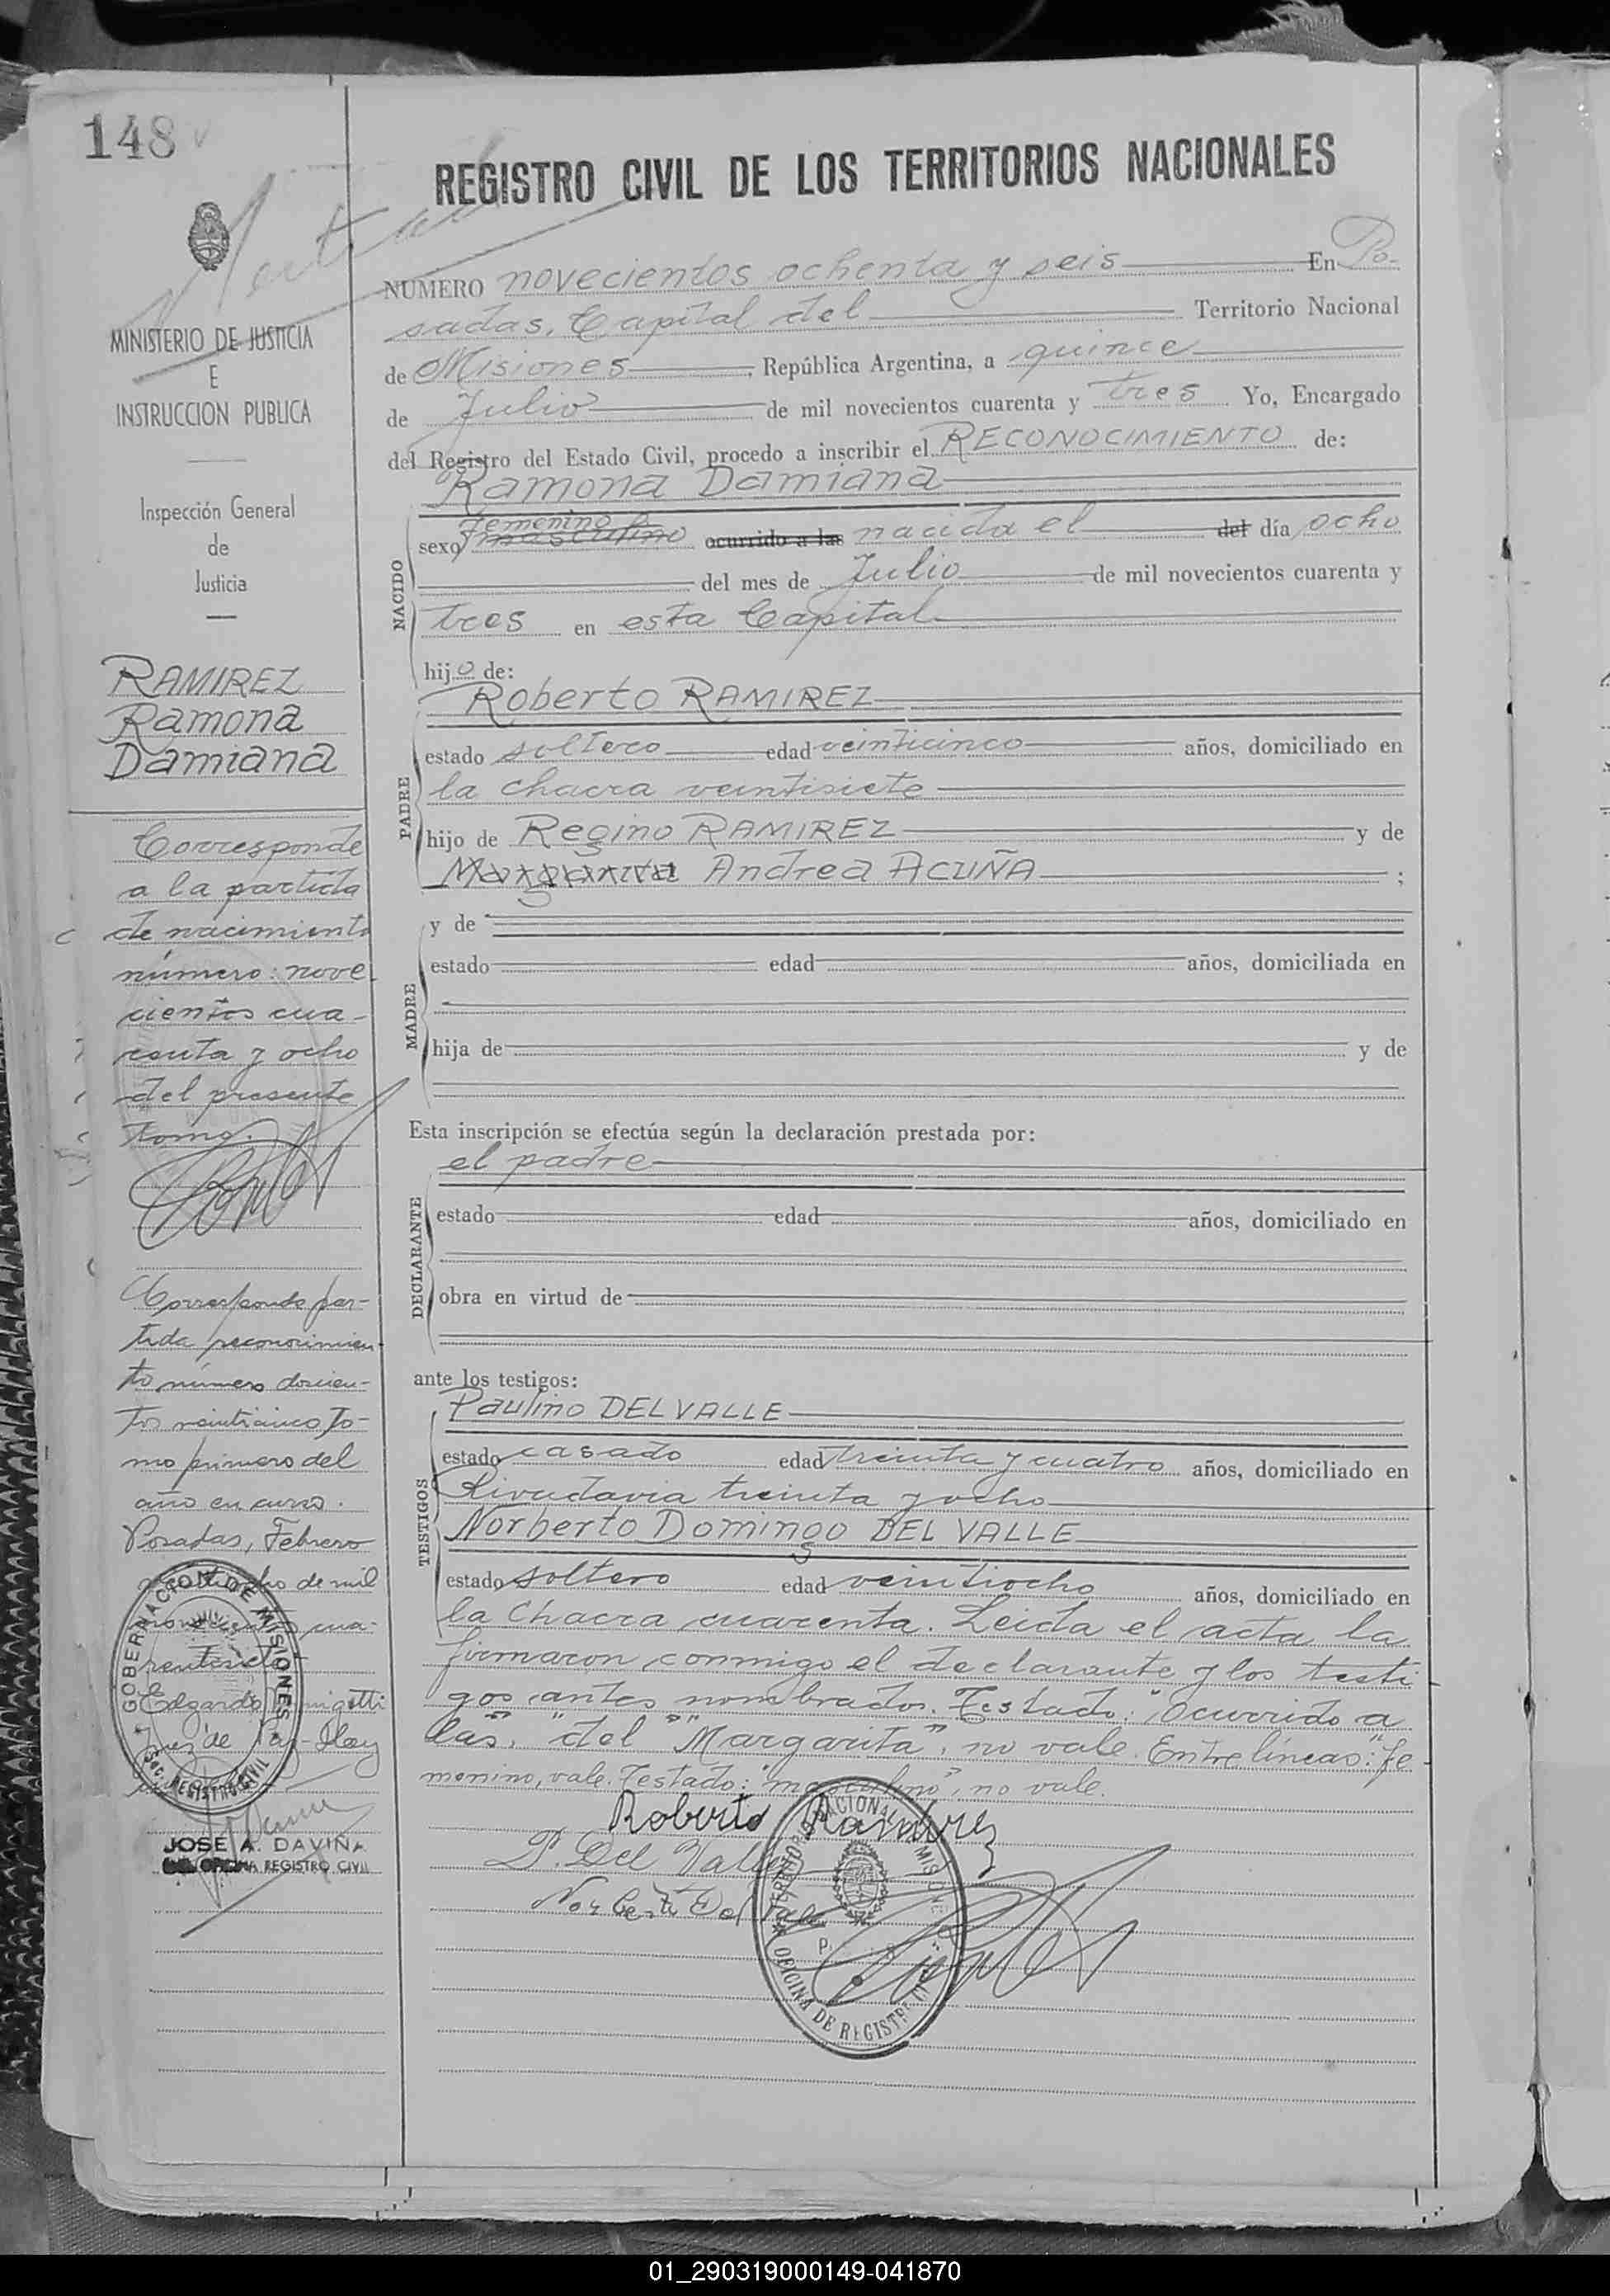 148
REGISTRO CIVIL DE LOS TERRITORIOS NACIONALES
NUMERO novecientos ochenta y seis En Po-
sadas, Capital del Territorio Nacional
de Misiones, República Argentina, a quince
de Julio de mil novecientos cuarenta y tres Yo, Encargado
del Registro del Estado Civil, procedo a inscribir el RECONOCIMIENTO de:
Ramona Damiana
NACIDO
Femenino
sexo masculino ocurrido a las nacida el del día ocho
del mes de Julio de mil novecientos cuarenta y
tres en esta Capital
hijo de:
PADRE
Roberto RAMIREZ
estado soltero edad veinticinco años, domiciliado en
la chacra veintisiete
hijo de Regino RAMIREZ y de
Margarita Andrea ACUÑA ;
MADRE
y de
estado edad años, domiciliada en
hija de y de
Esta inscripción se efectúa según la declaración prestada por:
DECLARANTE
el padre
estado edad años, domiciliado en
obra en virtud de
ante los testigos:
TESTIGOS
Paulino DEL VALLE
estado casado edad treinta y cuatro años, domiciliado en
Rivadavia treinta y ocho
Norberto Domingo DEL VALLE
estado soltero edad veintiocho años, domiciliado en
la Chacra cuarenta. Leida el acta la
firmaron conmigo el declarante y los testi-
gos antes nombrados. Testado: "Ocurrido a
las", "del" "Margarita", no vale. Entre líneas: "Fe-
menino, vale. Testado: "masculino", no vale.
Roberto Ramirez
P. Del Valle
Norberto Del Valle
OFICINA DE REGISTRO
MINISTERIO DE JUSTICIA
E
INSTRUCCION PUBLICA
Inspección General
de
Justicia
RAMIREZ
Ramona
Damiana
Corresponde
a la partida
de nacimiento
número: nove-
cientos cua-
renta y ocho
del presente
tomo.
Corresponde par-
tida reconocimien-
to número doscien-
tos veinticinco, to-
mo primero del
año en curso.
Posadas, Febrero
de mil
novecientos cua-
Edgardo
Juez de Paz
GOBERNACION DE MISIONES
SEC. REGISTRO CIVIL
JOSE A. DAVIÑA
OFICINA REGISTRO CIVIL
01_290319000149-041870